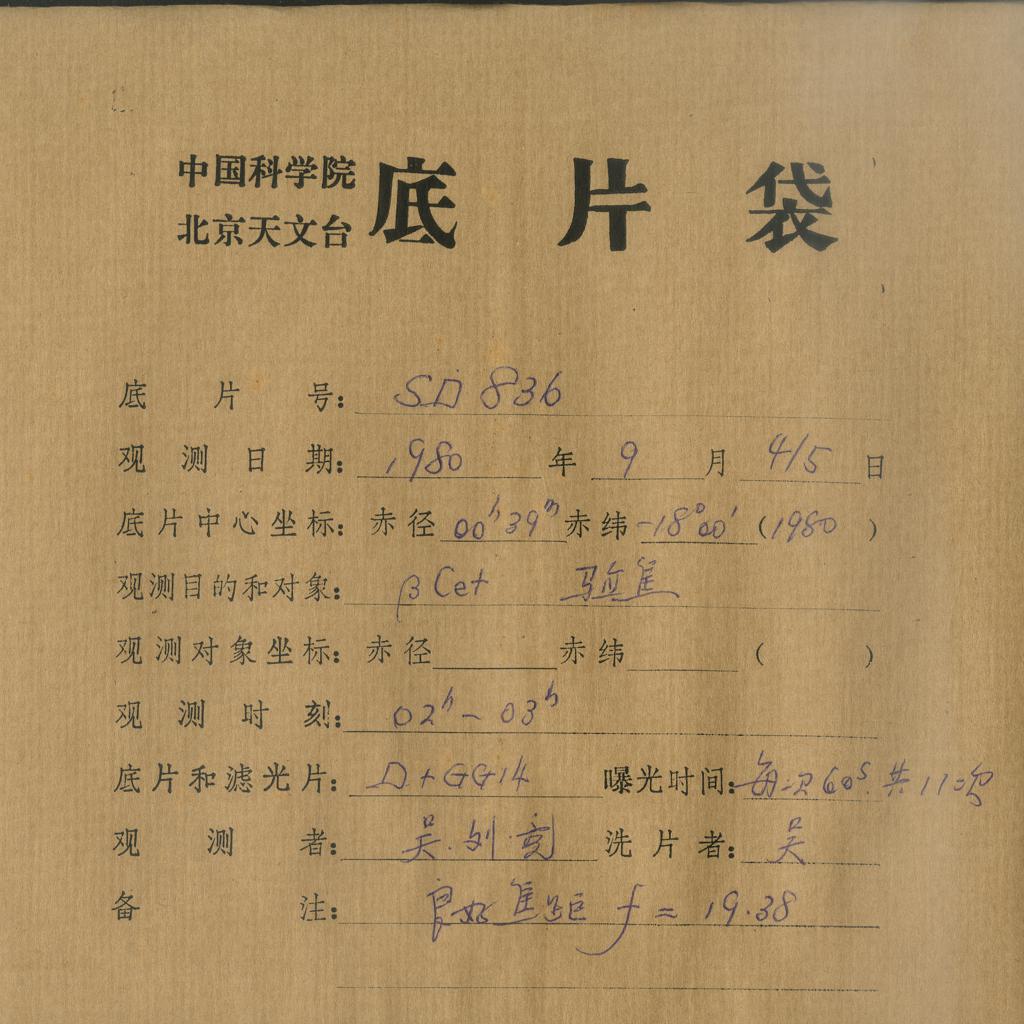 中国科学院
北京天文台
底片袋
底片号: SD 836
观测日期: 1980 年 9 月 4/5 日
底片中心坐标: 赤径 00ʰ39ᵐ 赤纬 -18°00′ (1980)
观测目的和对象: β Cet 验焦
观测对象坐标: 赤径 赤纬 ( )
观测时刻: 02ʰ - 03ʰ
底片和滤光片: D+GG14 曝光时间: 每次60ˢ.共11次
观测者: 吴. 洗片者: 吴
备注: 良好焦距 f = 19.38